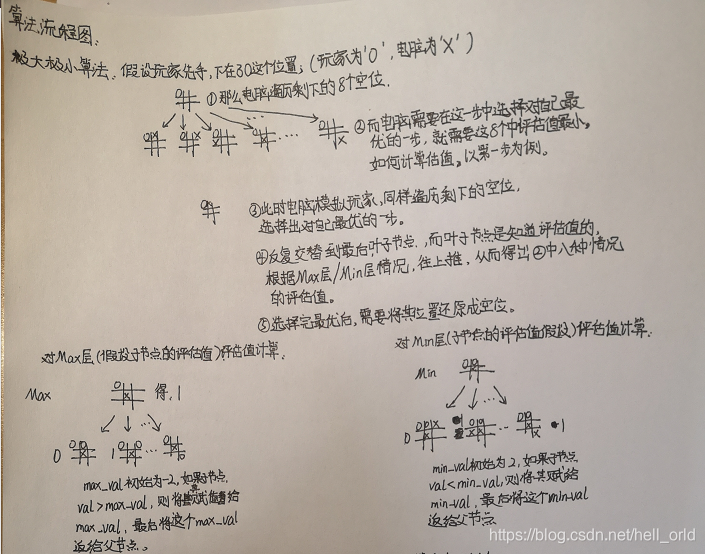 算法流程图:
极大极小算法、假设玩家先手,下在30这个位置;(玩家为'O',电脑为'X')
①那么电脑遍历剩下的8个空位.
②而电脑需要在这一步中选择对自己最
优的一步,就需要这8个中评估值最小。
如何计算估值。以第一步为例。
③此时电脑模拟玩家,同样遍历剩下的空位,
选择出对自己最优的一步。
④反复交替到最后叶子节点,而叶子节点是知道评估值的,
根据Max层/Min层情况,往上推,从而得出②中八种情况
的评估值。
⑤选择完最优后,需要将其位置还原成空位。
对Max层(假设子节点的评估值)评估值计算.
对Min层(子节点的评估值假设)评估值计算.
Max
得,1
0
1
max_val初始为-2,如果子节点
val>max_val,则将其赋值给
max_val,最后将这个max_val
返给父节点。
Min
0
1
min_val初始为2,如果子节点
val<min_val,则将其赋给
min_val,最后将这个min_val
返给父节点
https://blog.csdn.net/hell_orld